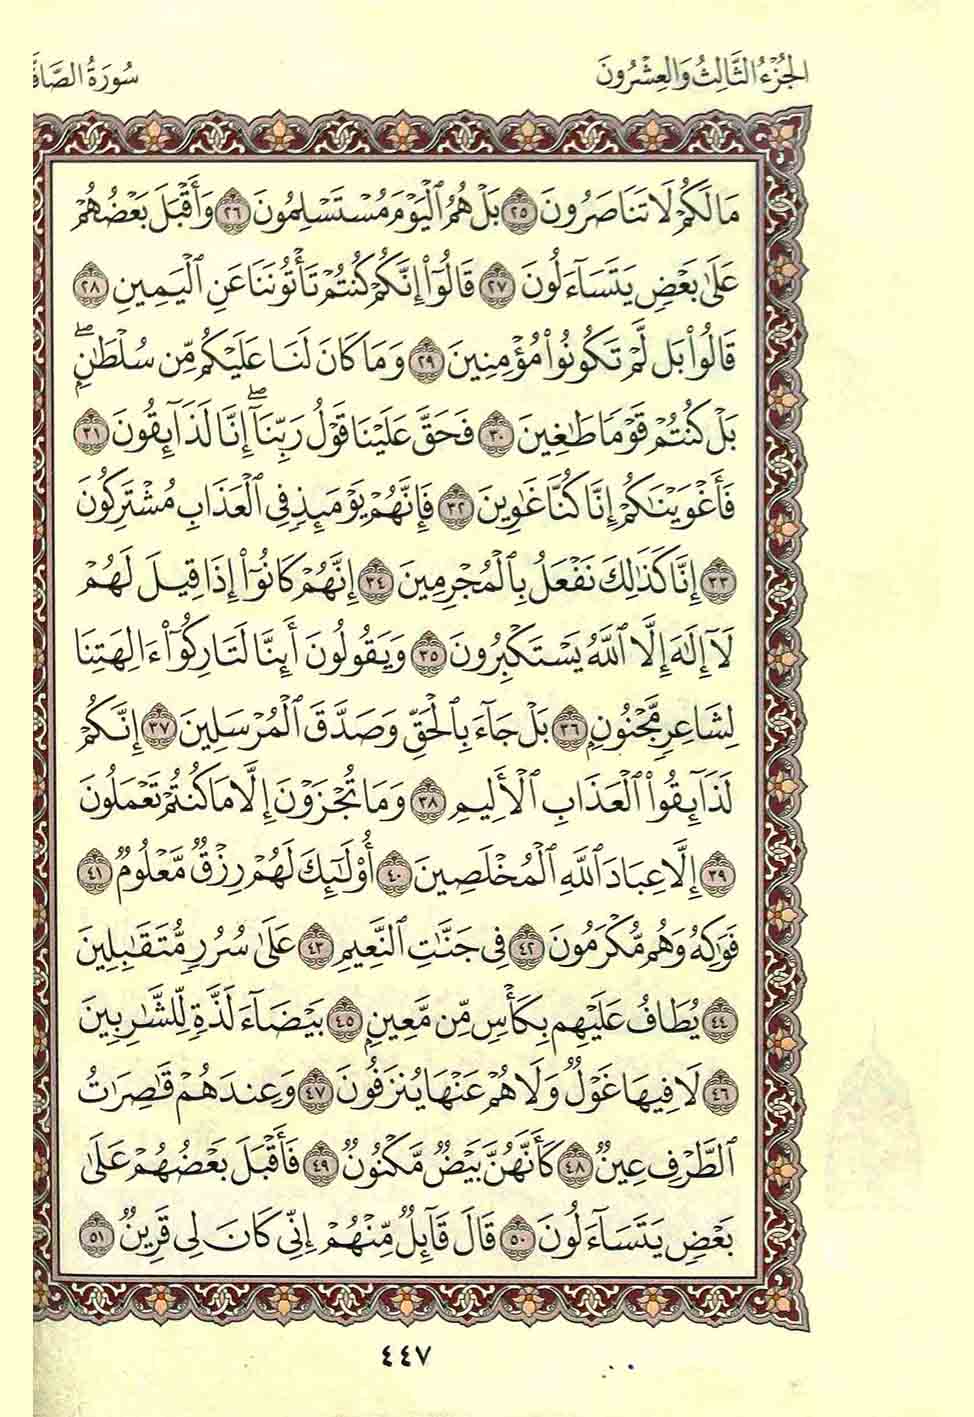 الجُزْءُ الثَّالِثُ وَالعِشْرُونَ
سُورَةُ الصَّافَّ
مَا لَكُمْ لَا تَنَاصَرُونَ ٢٥ بَلْ هُمُ ٱلْيَوْمَ مُسْتَسْلِمُونَ ٢٦ وَأَقْبَلَ بَعْضُهُمْ
عَلَىٰ بَعْضٍ يَتَسَآءَلُونَ ٢٧ قَالُوٓا۟ إِنَّكُمْ كُنتُمْ تَأْتُونَنَا عَنِ ٱلْيَمِينِ ٢٨
قَالُوا۟ بَل لَّمْ تَكُونُوا۟ مُؤْمِنِينَ ٢٩ وَمَا كَانَ لَنَا عَلَيْكُم مِّن سُلْطَٰنٍۭ ۖ
بَلْ كُنتُمْ قَوْمًا طَٰغِينَ ٣٠ فَحَقَّ عَلَيْنَا قَوْلُ رَبِّنَآ ۖ إِنَّا لَذَآئِقُونَ ٣١
فَأَغْوَيْنَٰكُمْ إِنَّا كُنَّا غَٰوِينَ ٣٢ فَإِنَّهُمْ يَوْمَئِذٍ فِى ٱلْعَذَابِ مُشْتَرِكُونَ
٣٣ إِنَّا كَذَٰلِكَ نَفْعَلُ بِٱلْمُجْرِمِينَ ٣٤ إِنَّهُمْ كَانُوٓا۟ إِذَا قِيلَ لَهُمْ
لَآ إِلَٰهَ إِلَّا ٱللَّهُ يَسْتَكْبِرُونَ ٣٥ وَيَقُولُونَ أَئِنَّا لَتَارِكُوٓا۟ ءَالِهَتِنَا
لِشَاعِرٍ مَّجْنُونٍۭ ٣٦ بَلْ جَآءَ بِٱلْحَقِّ وَصَدَّقَ ٱلْمُرْسَلِينَ ٣٧ إِنَّكُمْ
لَذَآئِقُوا۟ ٱلْعَذَابِ ٱلْأَلِيمِ ٣٨ وَمَا تُجْزَوْنَ إِلَّا مَا كُنتُمْ تَعْمَلُونَ
٣٩ إِلَّا عِبَادَ ٱللَّهِ ٱلْمُخْلَصِينَ ٤٠ أُو۟لَٰٓئِكَ لَهُمْ رِزْقٌ مَّعْلُومٌ ٤١
فَوَٰكِهُ وَهُم مُّكْرَمُونَ ٤٢ فِى جَنَّٰتِ ٱلنَّعِيمِ ٤٣ عَلَىٰ سُرُرٍ مُّتَقَٰبِلِينَ
٤٤ يُطَافُ عَلَيْهِم بِكَأْسٍ مِّن مَّعِينٍۭ ٤٥ بَيْضَآءَ لَذَّةٍ لِّلشَّٰرِبِينَ
٤٦ لَا فِيهَا غَوْلٌ وَلَا هُمْ عَنْهَا يُنزَفُونَ ٤٧ وَعِندَهُمْ قَٰصِرَٰتُ
ٱلطَّرْفِ عِينٌ ٤٨ كَأَنَّهُنَّ بَيْضٌ مَّكْنُونٌ ٤٩ فَأَقْبَلَ بَعْضُهُمْ عَلَىٰ
بَعْضٍ يَتَسَآءَلُونَ ٥٠ قَالَ قَآئِلٌ مِّنْهُمْ إِنِّى كَانَ لِى قَرِينٌ ٥١
٤٤٧